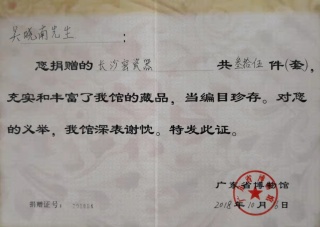 吴晓南先生：
您捐赠的长沙窑瓷器共叁拾伍件(套)，
充实和丰富了我馆的藏品，当编目珍存。对您
的义举，我馆深表谢忱。特发此证。
广东省博物馆
2018年10月 日
捐赠证号：